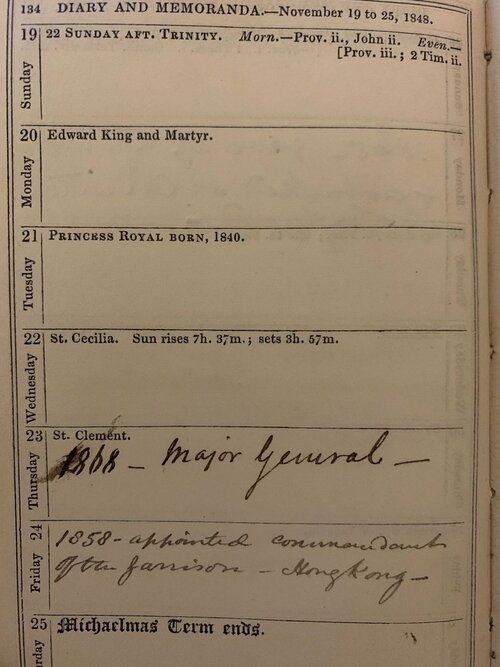 134 DIARY AND MEMORANDA.—November 19 to 25, 1848.
19 22 SUNDAY AFT. TRINITY. Morn.—Prov. ii., John ii. Even.—
[Prov. iii.; 2 Tim. ii.
Sunday
20 Edward King and Martyr.
Monday
21 PRINCESS ROYAL BORN, 1840.
Tuesday
22 St. Cecilia. Sun rises 7h. 37m.; sets 3h. 57m.
Wednesday
23 St. Clement.
1868 — Major General —
Thursday
24 1858 - appointed commandant
of the Garrison — Hong Kong —
Friday
25 Michaelmas Term ends.
rday